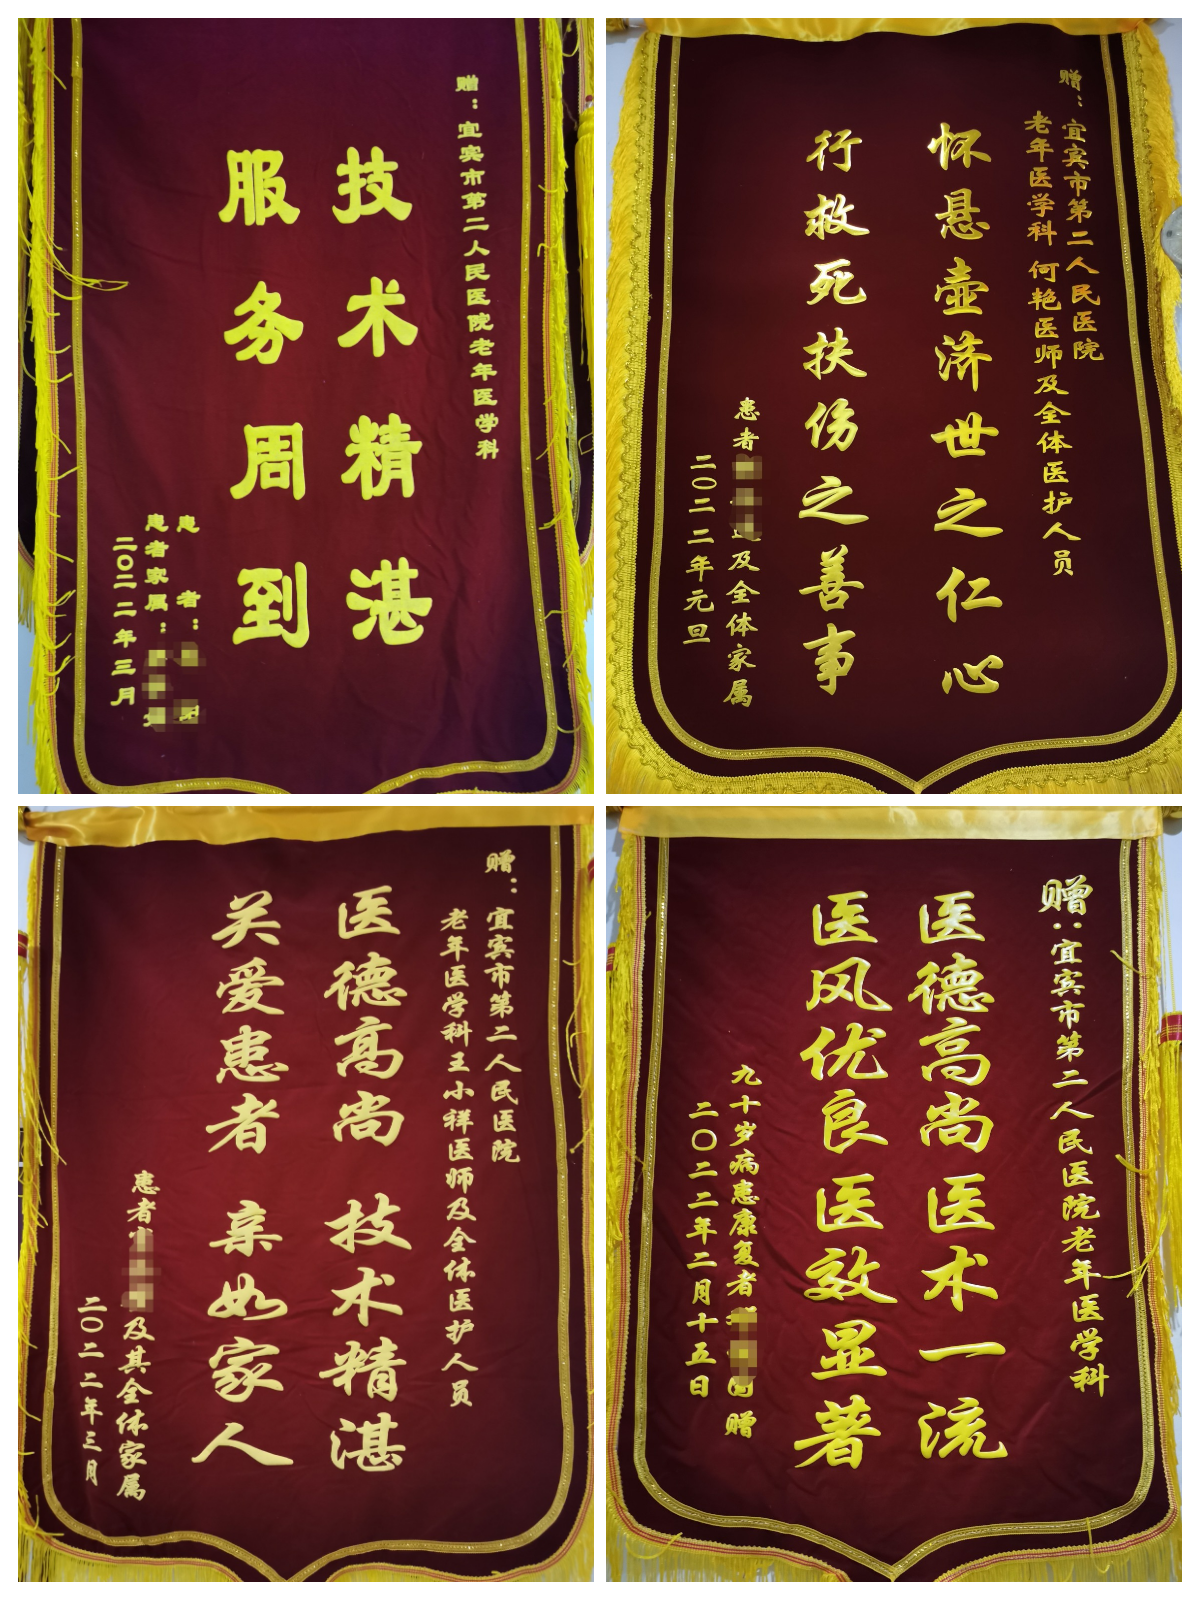 赠：宜宾市第二人民医院老年医学科
技术精湛
服务周到
患者：
患者家属：
二〇二二年三月
赠：宜宾市第二人民医院
老年医学科 何艳医师及全体医护人员
怀悬壶济世之仁心
行救死扶伤之善事
患者 及全体家属
二〇二二年元旦
赠：宜宾市第二人民医院
老年医学科王小祥医师及全体医护人员
医德高尚 技术精湛
关爱患者 亲如家人
患者 及其全体家属
二〇二二年三月
赠：宜宾市第二人民医院老年医学科
医德高尚医术一流
医风优良医效显著
九十岁病患康复者 赠
二〇二二年二月十五日